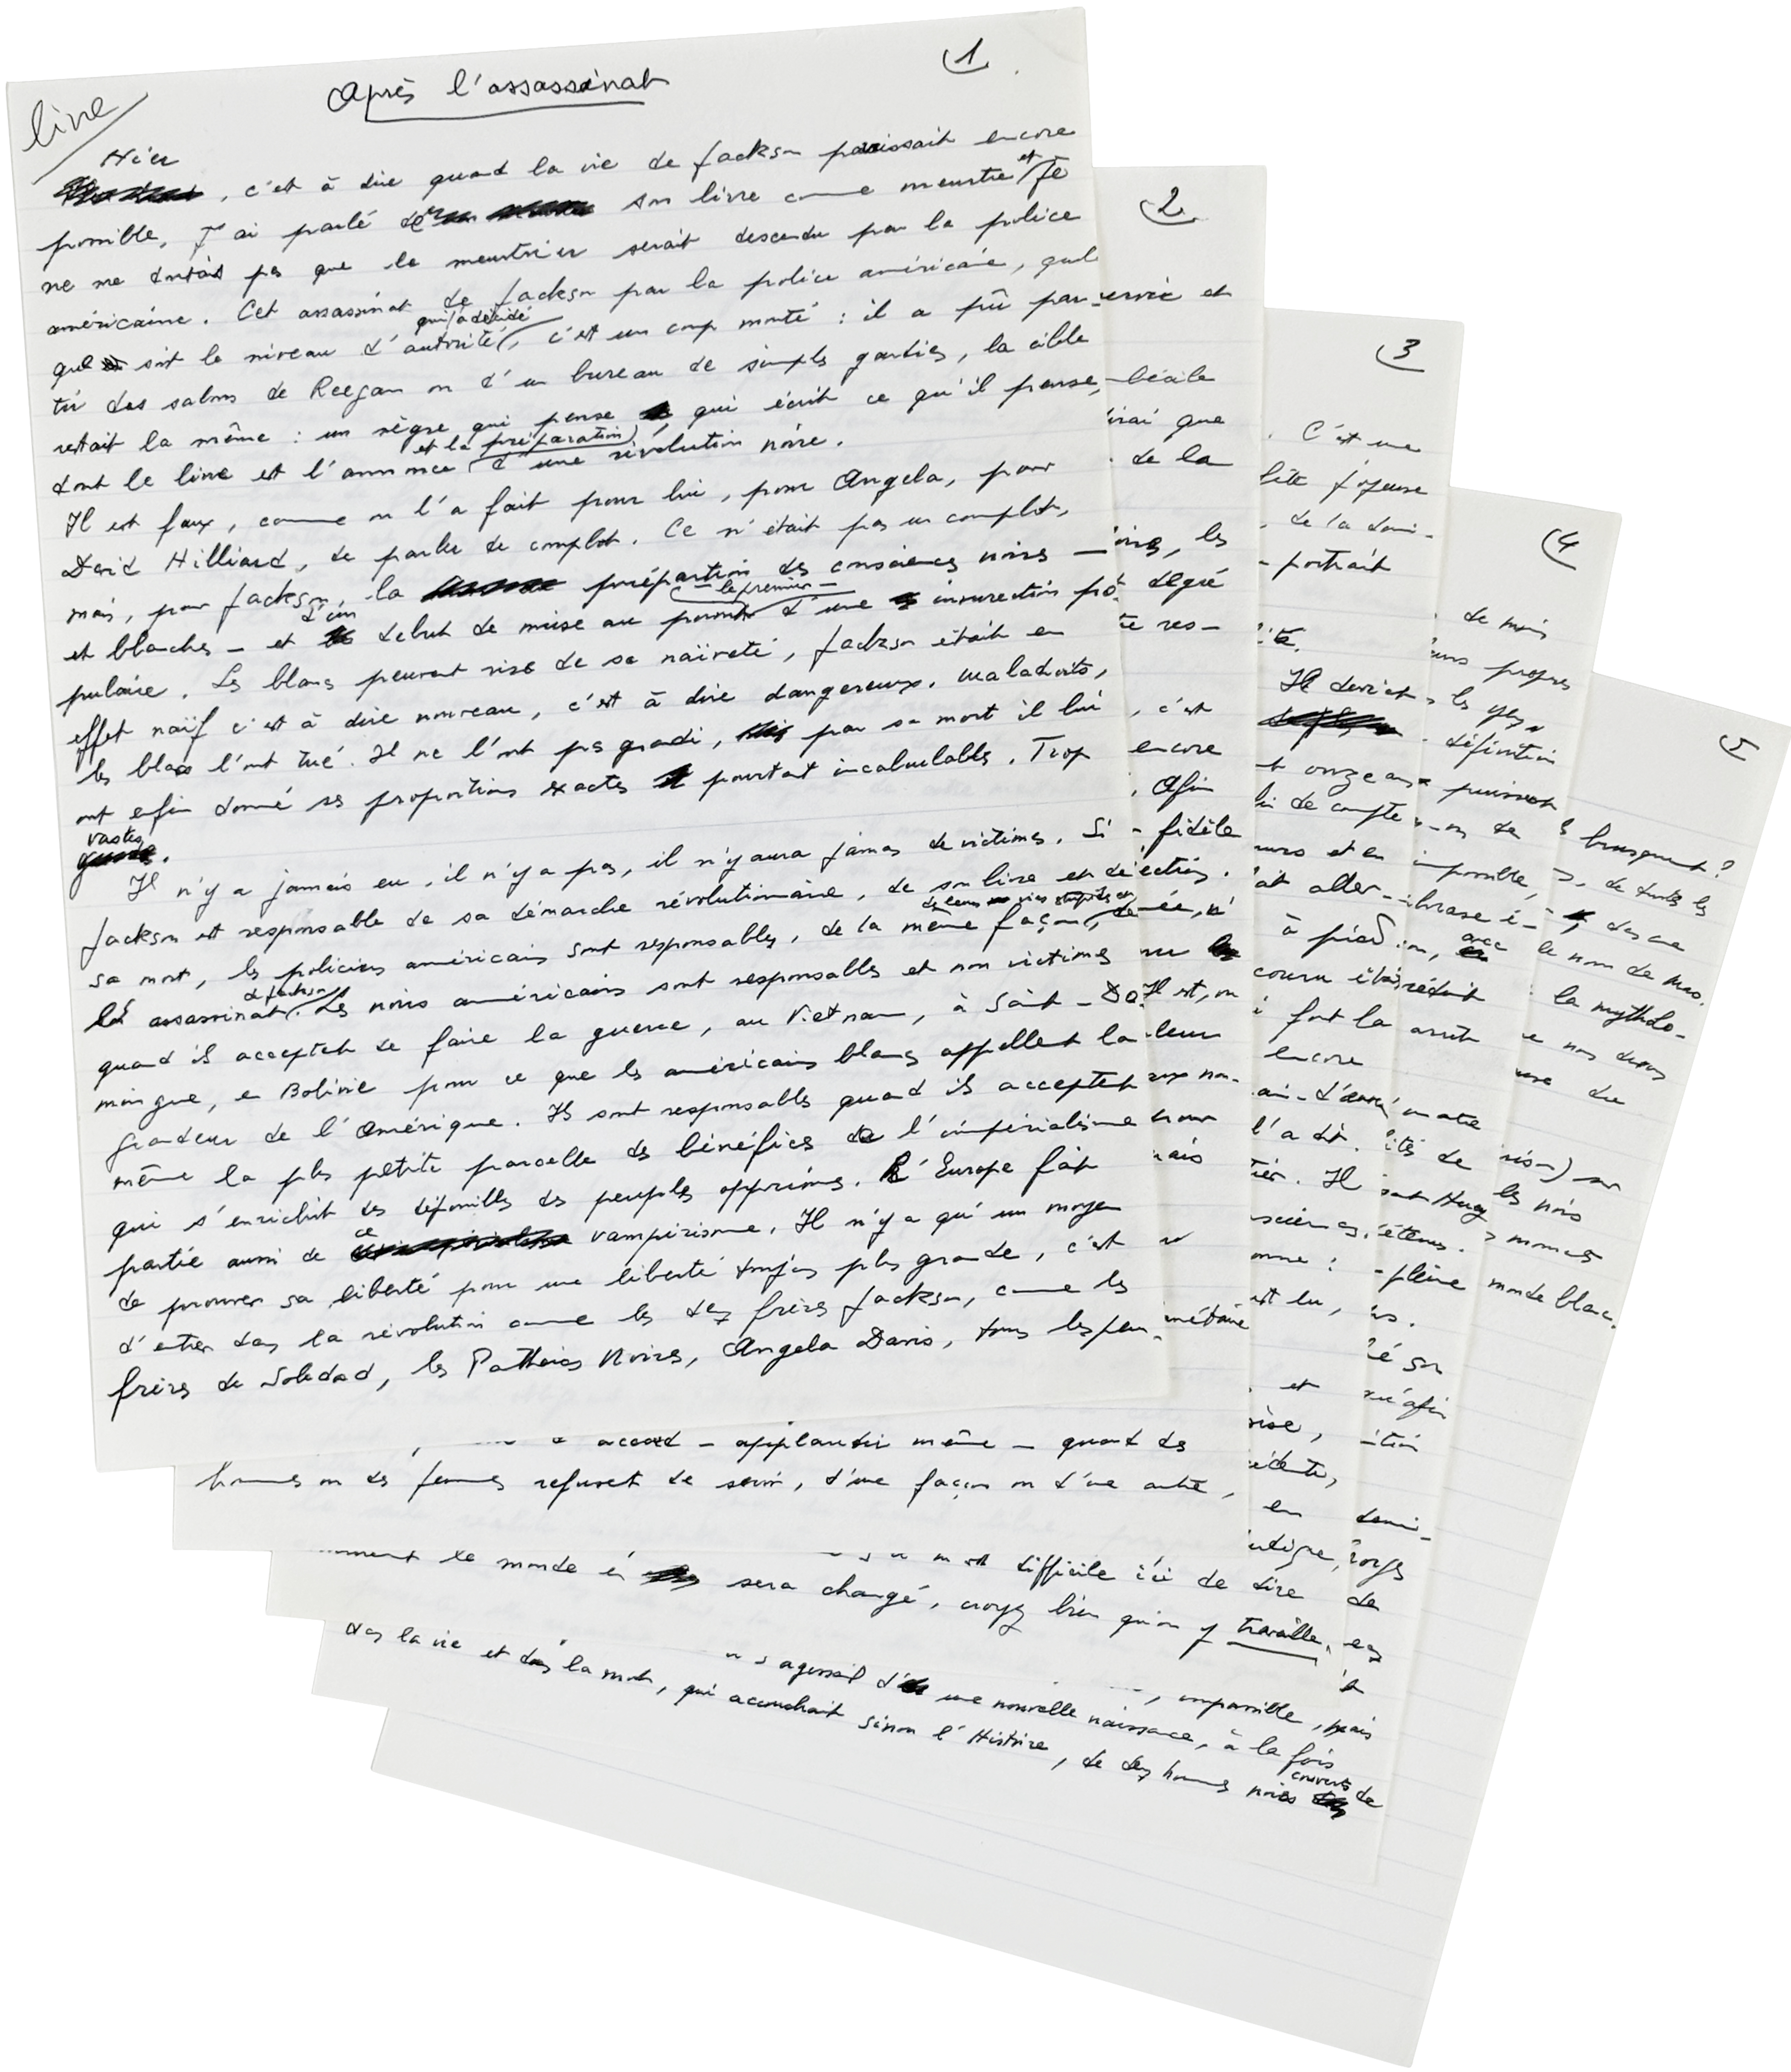 1
Après l'assassinat
livre
Hier
, c'est à dire quand la vie de Jackson paraissait encore
possible, j'ai parlé de son livre comme meurtre et je
ne me doutais pas que le meurtrier serait descendu par la police
américaine. Cet assassinat de Jackson par la police américaine, quel
que soit le niveau d'autorité qui l'a décidé, c'est un coup monté : il a pû par-
tir des salons de Reegan ou d'un bureau de simples gardiens, la cible
restait la même : un nègre qui pense, qui écrit ce qu'il pense,
dont le livre est l'annonce et la préparation d'une révolution noire.
Il est faux, comme on l'a fait pour lui, pour Angela, pour
David Hilliard, de parler de complot. Ce n'était pas un complot,
mais, pour Jackson, la préparation des consciences noires
et blanches – et d'un début de mise au point – le premier – d'une insurrection po-
pulaire. Les blancs peuvent rire de sa naïveté, Jackson était en
effet naïf c'est à dire nouveau, c'est à dire dangereux. Maladroits,
les blancs l'ont tué. Il ne l'ont pas grandi, par sa mort il lui
ont enfin donné ses proportions exactes pourtant incalculables. Trop
vastes.
Il n'y a jamais eu, il n'y a pas, il n'y aura jamais de victimes. Si
Jackson est responsable de sa démarche révolutionnaire, de son livre et de
sa mort, les policiers américains sont responsables, de la même façon, de leurs vies stupides et de
l'assassinat de Jackson. Les noirs américains sont responsables et non victimes
quand ils acceptent de faire la guerre, au Vietnam, à Saint-Do-
mingue, en Bolivie pour ce que les américains blancs appellent la
grandeur de l'Amérique. Ils sont responsables quand ils acceptent
même la plus petite parcelle des bénéfices de l'impérialisme
qui s'enrichit des dépouilles des peuples opprimés. L'Europe fait
partie aussi de ce vampirisme. Il n'y a qu'un moyen
de prouver sa liberté pour une liberté toujours plus grande, c'est
d'entrer dans la révolution comme les deux frères Jackson, comme les
frères de Soledad, les Panthères Noires, Angela Davis, tous les peu-
2
servie et
bécile
irai que
de la
les
degré
res-
, c'est
encore
. Afin
fidèle
Il est, on
leur
accord – applaudir même – quand des
hommes ou des femmes refusent de servir, d'une façon ou d'une autre,
3
. C'est une
joyeuse
de la domi-
portrait
Il devient
onze ans
de compte
et en
aller
à pied
couru
fort la
encore
l'a dit.
Il
est lu,
et
difficile ici de dire
comment le monde en sera changé, croyez bien qu'on y travaille.
4
de mois
propres
les yeux
définition
puissent
impossible,
avec
réduit
arrêt
pleine
de
impossible, mais
s'agissait d'une nouvelle naissance, à la fois
dans la vie et dans la mort, qui accouchait sinon l'Histoire, de deux hommes noirs couverts de
5
brusquement ?
de toutes les
le nom de
la mytholo-
nos
du
sur
les noirs
moments
monde blanc.